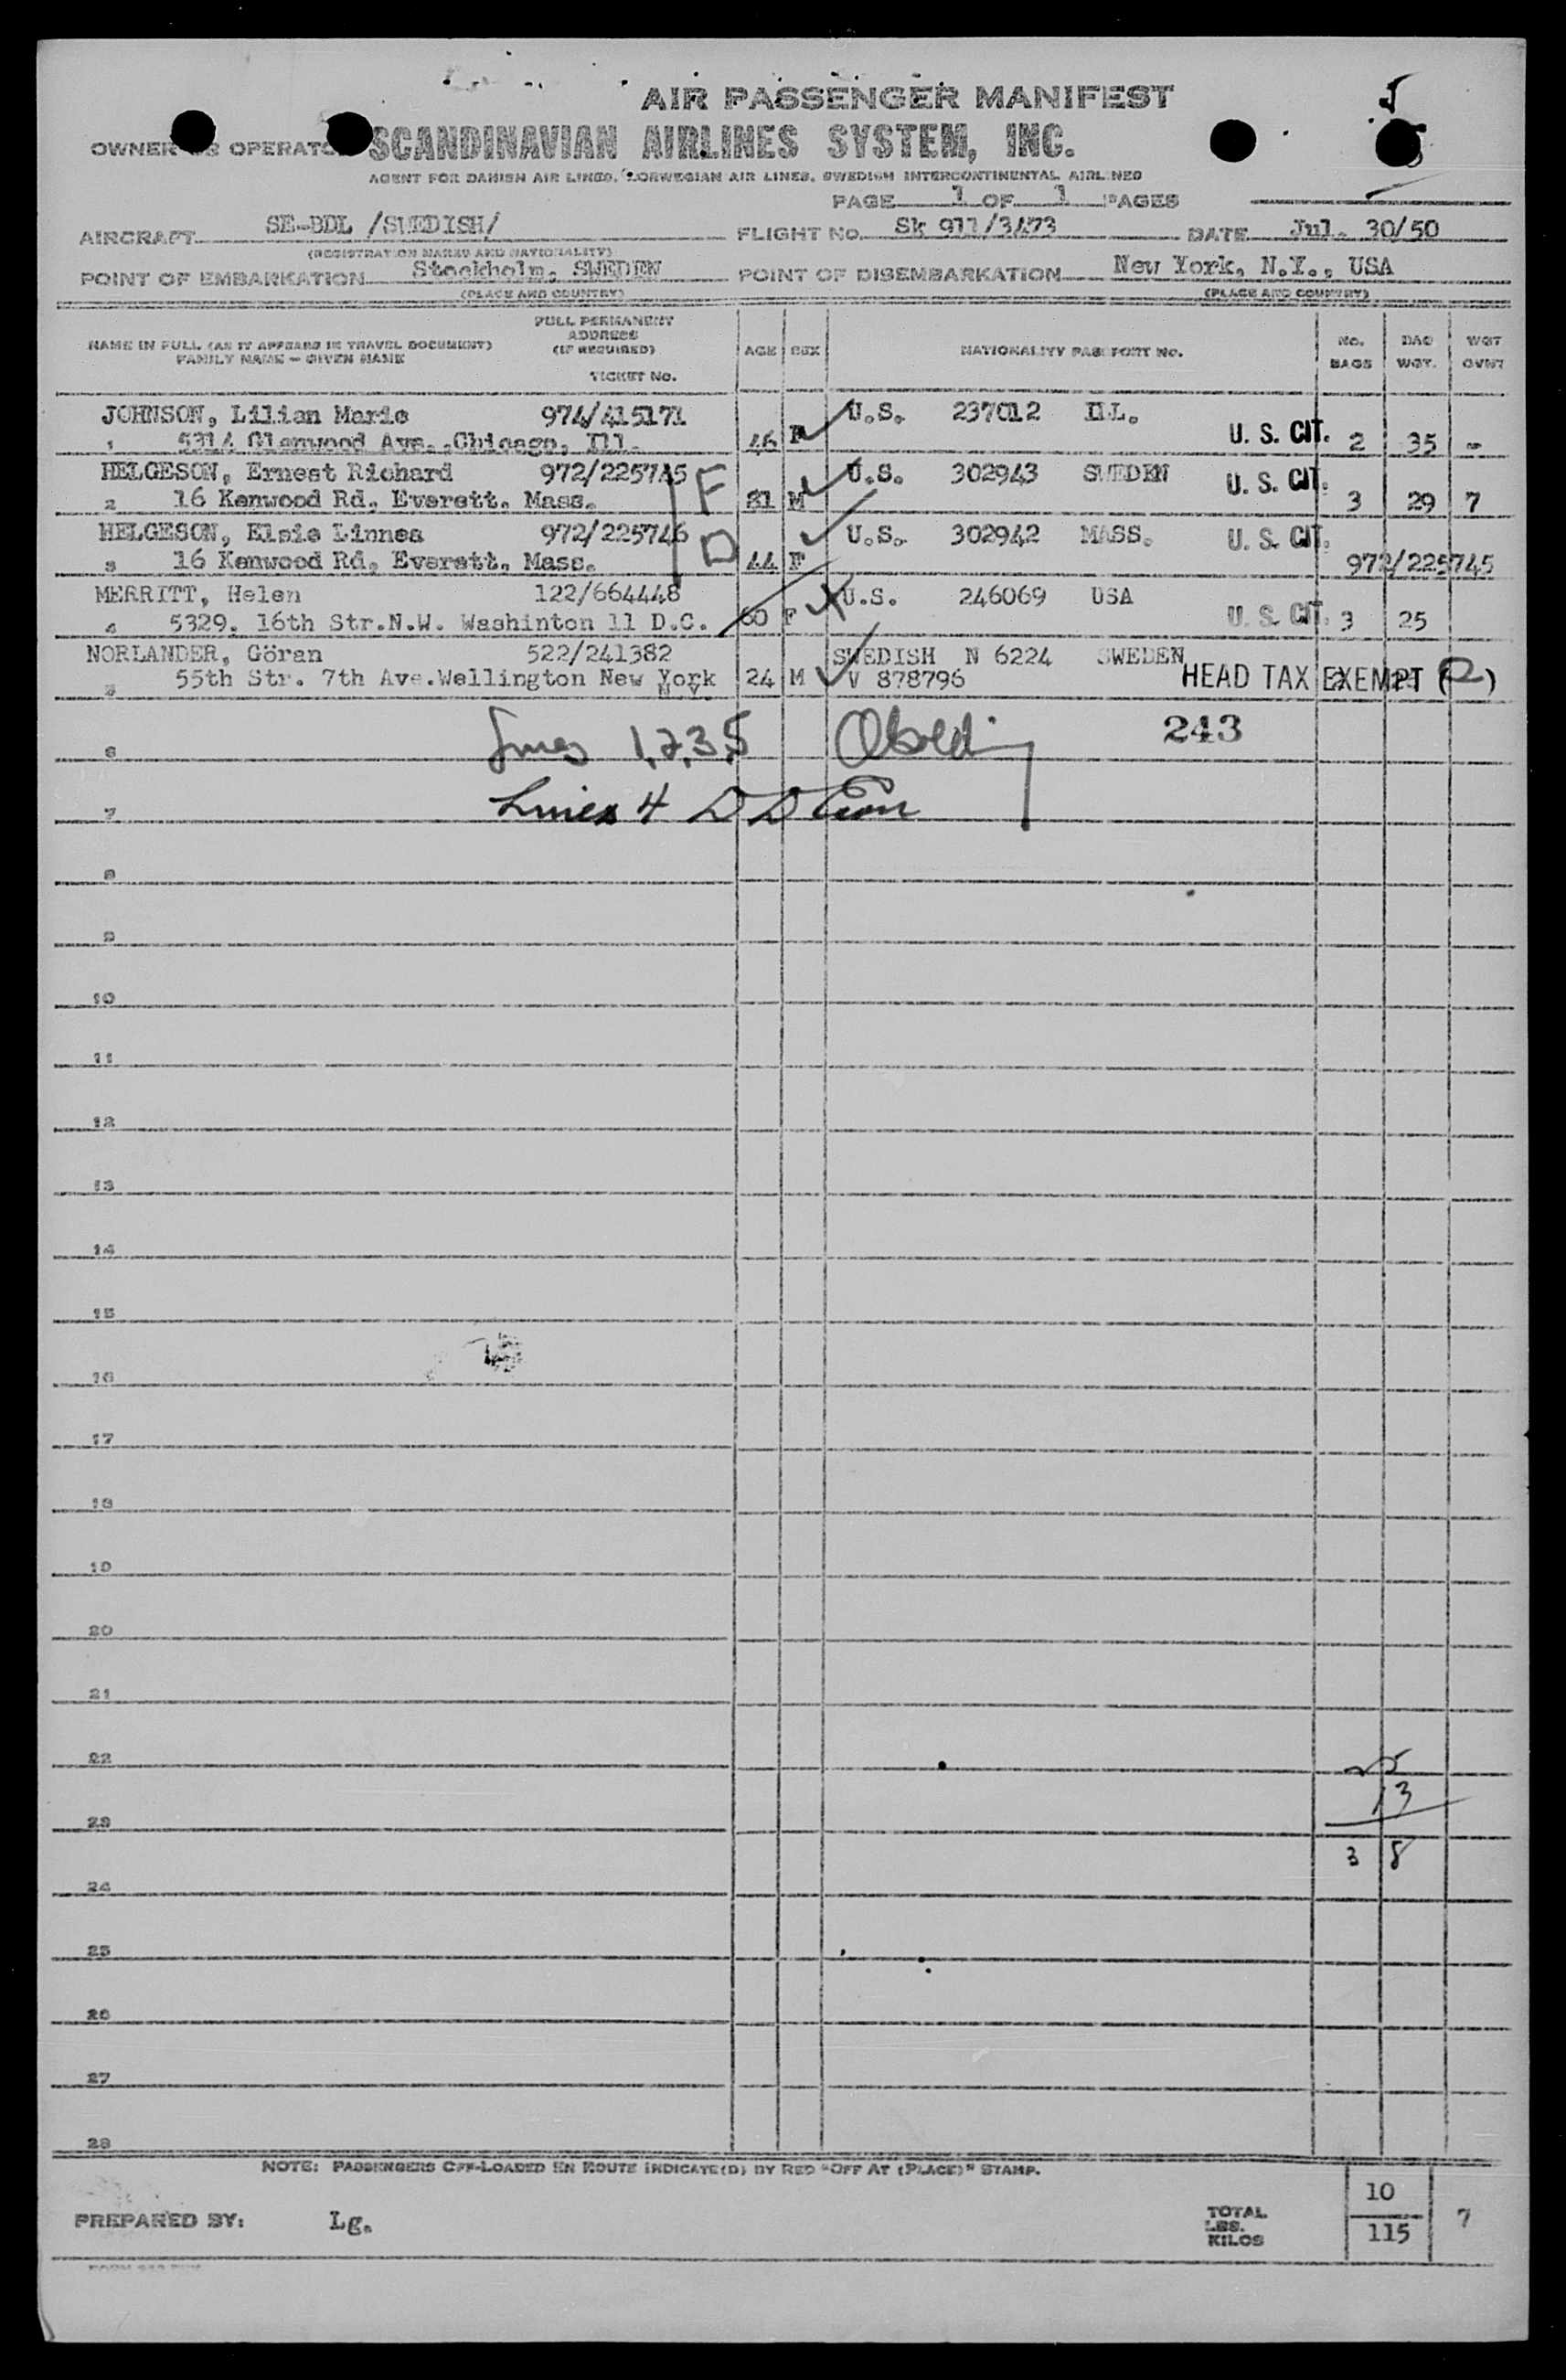 AIR PASSENGER MANIFEST
5
OWNER OR OPERATOR SCANDINAVIAN AIRLINES SYSTEM, INC.
AGENT FOR DANISH AIR LINES, NORWEGIAN AIR LINES, SWEDISH INTERCONTINENTAL AIRLINES
PAGE 1 OF 1 PAGES
AIRCRAFT SE-BDL /SWEDISH/ FLIGHT No. Sk 911/3473 DATE Jul. 30/50
(REGISTRATION MARKS AND NATIONALITY)
POINT OF EMBARKATION Stockholm, SWEDEN POINT OF DISEMBARKATION New York, N.Y., USA
(PLACE AND COUNTRY) (PLACE AND COUNTRY)
NAME IN FULL (AS IT APPEARS IN TRAVEL DOCUMENT) FAMILY NAME — GIVEN NAME
FULL PERMANENT ADDRESS (IF REQUIRED)
TICKET No.
AGE SEX NATIONALITY PASSPORT NO. No. BAGS BAG WGT. WGT OVWT
JOHNSON, Lilian Marie 974/415171 U.S. 237012 ILL.
1 5314 Glenwood Ave.,Chicago, Ill. 46 F U. S. CIT. 2 35 -
HELGESON, Ernest Richard 972/225745 F U.S. 302943 SWEDEN U. S. CIT.
2 16 Kenwood Rd. Everett, Mass. 81 M 3 29 7
HELGESON, Elsie Linnea 972/225746 D U.S. 302942 MASS. U. S. CIT.
3 16 Kenwood Rd. Everett, Mass. 44 F 972/225745
MERRITT, Helen 122/664448 U.S. 246069 USA
4 5329. 16th Str.N.W. Washinton 11 D.C. 60 F U. S. CIT. 3 25
NORLANDER, Göran 522/241382 SWEDISH N 6224 SWEDEN
5 55th Str. 7th Ave.Wellington New York 24 M V 878796 HEAD TAX EXEMPT ( )
N Y.
6 Lines 1,2,3,5 243
7 Lines 4
8
9
10
11
12
13
14
15
16
17
18
19
20
21
22 25
13
23
38
24
25
26
27
28
NOTE: PASSENGERS OFF-LOADED EN ROUTE INDICATE(D) BY RED "OFF AT (PLACE)" STAMP.
PREPARED BY: Lg. TOTAL LBS. KILOS 10 115 7